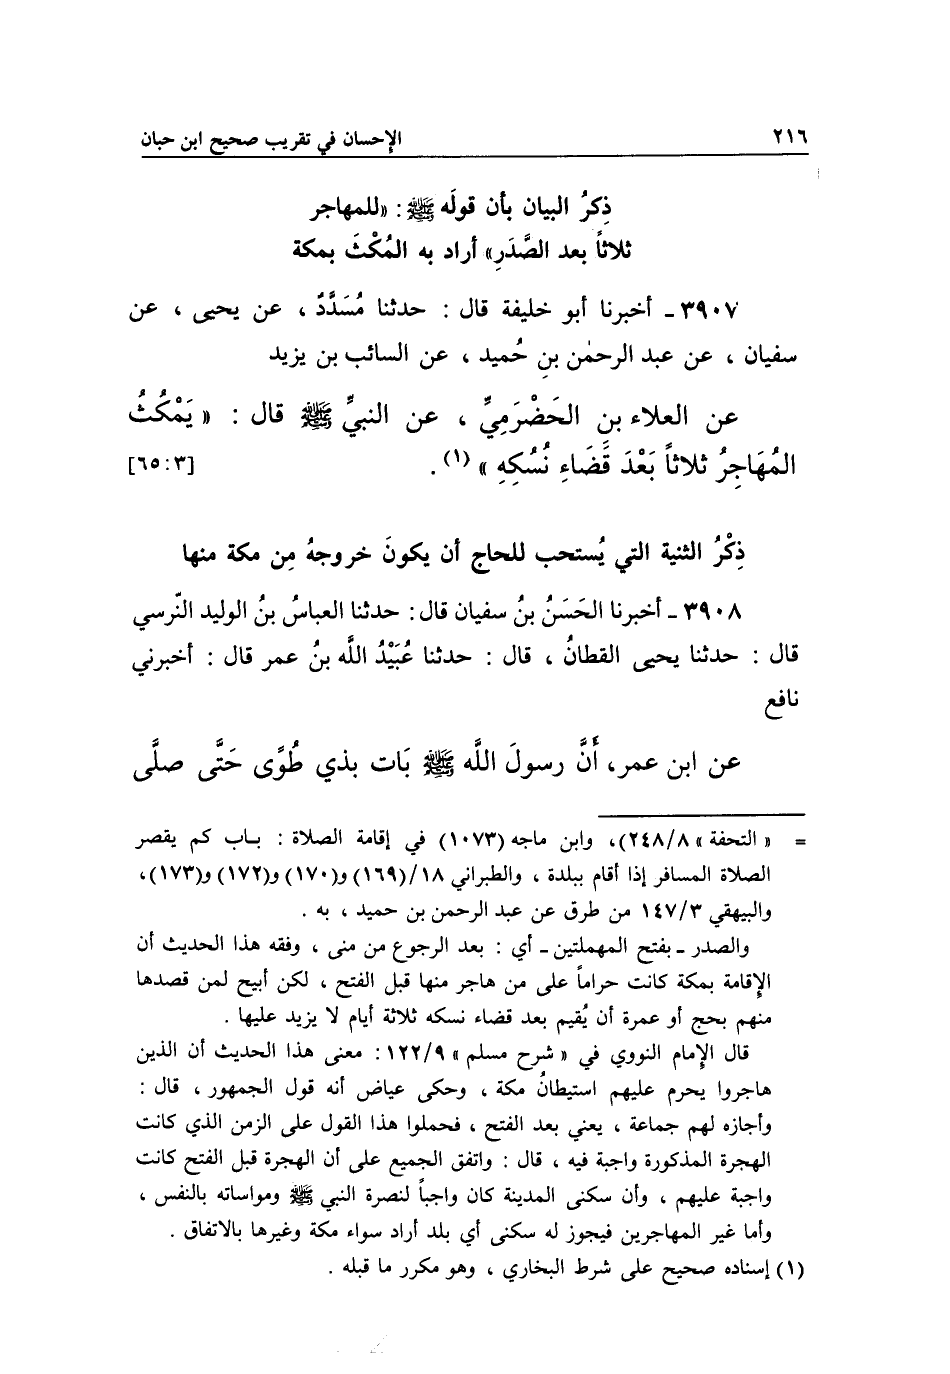 ٢١٦ الإحسان في تقريب صحيح ابن حبان
ذِكرُ البيان بأن قولَه ﷺ: «للمهاجر
ثلاثاً بعد الصَّدَرِ» أراد به المُكْثَ بمكة
٣٩٠٧ ـ أخبرنا أبو خليفة قال : حدثنا مُسَدَّدٌ ، عن يحيى ، عن
سفيان ، عن عبد الرحمٰن بنِ حُميد ، عن السائب بن يزيد
عن العلاء بنِ الحَضْرَمِيِّ ، عن النبيِّ ﷺ قال : « يَمْكُثُ
المُهَاجِرُ ثلاثاً بَعْدَ قَضَاءِ نُسُكِهِ » (١) . [٦٥:٣]
ذِكْرُ الثنية التي يُستحب للحاج أن يكونَ خروجهُ مِن مكة منها
٣٩٠٨ ـ أخبرنا الحَسَنُ بنُ سفيان قال: حدثنا العباسُ بنُ الوليد النَّرسي
قال : حدثنا يحيى القطانُ ، قال : حدثنا عُبَيْدُ اللَّه بنُ عمر قال : أخبرني
نافع
عن ابن عمر، أَنَّ رسولَ اللَّه ﷺ بَات بذي طُوًى حَتَّى صلَّى
= « التحفة » ٢٤٨/٨)، وابن ماجه (١٠٧٣) في إقامة الصلاة : بـاب كم يقصر
الصلاة المسافر إذا أقام ببلدة ، والطبراني ١٨/(١٦٩) و(١٧٠) و(١٧٢) و(١٧٣)،
والبيهقي ١٤٧/٣ من طرق عن عبد الرحمن بن حميد ، به .
والصدر ـ بفتح المهملتين ـ أي : بعد الرجوع من منى ، وفقه هذا الحديث أن
الإقامة بمكة كانت حراماً على من هاجر منها قبل الفتح ، لكن أبيح لمن قصدها
منهم بحج أو عمرة أن يُقيم بعد قضاء نسكه ثلاثة أيام لا يزيد عليها .
قال الإمام النووي في « شرح مسلم » ١٢٢/٩ : معنى هذا الحديث أن الذين
هاجروا يحرم عليهم استيطانُ مكة ، وحكى عياض أنه قول الجمهور ، قال :
وأجازه لهم جماعة ، يعني بعد الفتح ، فحملوا هذا القول على الزمن الذي كانت
الهجرة المذكورة واجبة فيه ، قال : واتفق الجميع على أن الهجرة قبل الفتح كانت
واجبة عليهم ، وأن سكنى المدينة كان واجباً لنصرة النبي ﷺ ومواساته بالنفس ،
وأما غير المهاجرين فيجوز له سكنى أي بلد أراد سواء مكة وغيرها بالاتفاق .
(١) إسناده صحيح على شرط البخاري ، وهو مكرر ما قبله .